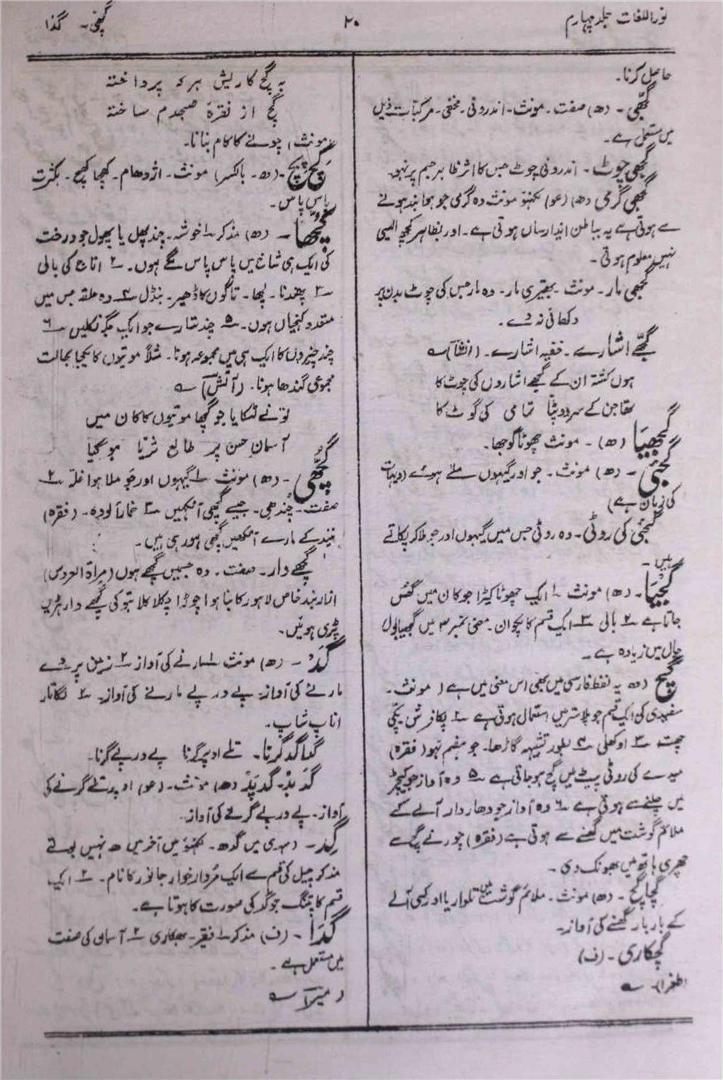 نوراللغات جلد چہارم
۲۰
گچھی۔ گدا
حاصل کرنا۔
گجھی۔ (ھ) صفت۔ مونث۔ اندرونی۔ مخفی۔ مرکبات ذیل
میں مستعمل ہے۔
گجھی چوٹ۔ اندرونی چوٹ جس کا اثر ظاہر جسم پر نہو۔
گجھی گرمی (ھ) (عو) لکھنؤ مونث وہ گرمی جو ہوا بند ہونے
سے ہوتی ہے یہ بباطن ایذا رساں ہوتی ہے۔ اور بظاہر کچھ ایسی
نہیں معلوم ہوتی۔
گجھی مار۔ مونث۔ بھیتری مار۔ وہ مار جس کی چوٹ بدن پر
دکھائی نہ دے۔
گجھے اشارے۔ خفیہ اشارے۔ (انشا)
ہوں کشتہ ان کے گجھے اشاروں کی چوٹ کا
کے سر دوپٹا تمامی کی گوٹ کا
گجھیا (ھ)۔ مونث چھوٹا گوجھا۔
گجئی۔ (ھ) مونث۔ جو اور گیہوں ملے ہوئے (دیہات
کی زبان ہے)
گجئی کی روٹی۔ وہ روٹی جس میں گیہوں اور جو ملا کر پکاتے
ہیں۔
گجیا۔ (ھ) مونث ۱ ایک چھوٹا کیڑا جو کان میں گھس
جاتا ہے ۲ بالی ۳ ایک قسم کا پکوان۔ معنی نمبر ۳ میں گجھیا بول
چال میں زیادہ ہے۔
گچ (ھ یہ لفظ فارسی میں بھی اس معنی میں ہے) مونث۔
سفیدی کی ایک قسم جو پلاستر میں استعمال ہوتی ہے ۲ پکا فرش پکی
چھت ۳ اوکھلی ۴ بطور تشبیہ گاڑھا۔ جو ہضم نہو (فقرہ)
میدے کی روٹی پیٹ میں گچ ہو جاتی ہے ۵ وہ آواز جو کیچڑ
میں چلنے سے ہوتی ہے ۶ وہ آواز جو دھار دار آلے کے
ملائم گوشت میں گھسنے سے ہوتی ہے (فقرہ) چور نے گچ سے
چھری ہاتھ میں بھونک دی۔
گچا گچ۔ (ھ) مونث۔ ملائم گوشت میں تلوار یا اور کسی آلے
کے بار بار گھسنے کی آواز۔
گچکاری۔ (ف)
(ظغرا)۔
بہ گچ کاریش ہر کہ پرداختہ
گچ از نقرۂ صبحدم ساختہ
مونث) چونے کا کام بنانا۔
گچ پچ۔ (ھ۔ بالکسر) مونث۔ اژدھام۔ کھچا کھچ۔ بکثرت
پاس پاس۔
گچھا۔ (ھ) مذکر ۱ خوشہ۔ چند پھل یا پھول جو درخت
کی ایک ہی شاخ میں پاس پاس لگے ہوں۔ ۲ اناج کی بالی
۳ پھندنا۔ لچھا۔ تاگوں کا ڈھیر۔ بنڈل ۴ وہ حلقہ جس میں
متعدد کنجیاں ہوں۔ ۵ چند شارے جو ایک جگہ نکلیں ۶
چند چیزوں کا ایک ہی میں مجموعہ ہونا۔ مثلاً موتیوں کا یکجا بحالت
مجموعی گندھا ہونا۔ (آتش)
تونے لٹکایا جو گچھا موتیوں کا کان میں
آسمان حسن پر طالع ثریا ہو گیا
گچھی۔ (ھ) مونث ۱ گیہوں اور جو ملا ہوا غلہ ۲
صفت۔ چندھی۔ جیسے گچھی آنکھیں ۳ خمار آلودہ۔ (فقرہ)
نیند کے مارے آنکھیں گچھی ہو رہی ہیں۔
گچھے دار۔ صفت۔ وہ جسمیں گچھے ہوں (مراۃ العروس)
ازار بند خاص لاہور کا بنا ہوا چوڑا چکلا کلابتو کی گچھے دار لڑیں
پڑی ہوئیں۔
گد۔ (ھ) مونث ۱ مارنے کی آواز ۲ زمین پر دے
مارنے کی آواز۔ پے در پے مارنے کی آواز۔ ۳ لگاتار
اناپ شاپ۔
گداگد گرنا۔ تلے اوپر گرنا پے در پے گرنا۔
گد بد۔ گد پد (ھ) مونث۔ (عو) اوپر تلے گرنے کی
آواز۔ پے در پے گرنے کی آواز۔
گد۔ (ہندی میں گدھ۔ لکھنؤ میں آخر میں ھ نہیں بولتے
مذکر چیل کی قسم سے ایک مردار خوار جانور کا نام۔ ۲ ایک
قسم کا پتنگ جو گد کی صورت کا ہوتا ہے۔
گدا۔ (ف) مذکر ۱ فقیر۔ بھکاری ۲ آسامی کی صفت
میں مستعمل ہے۔
(میر)